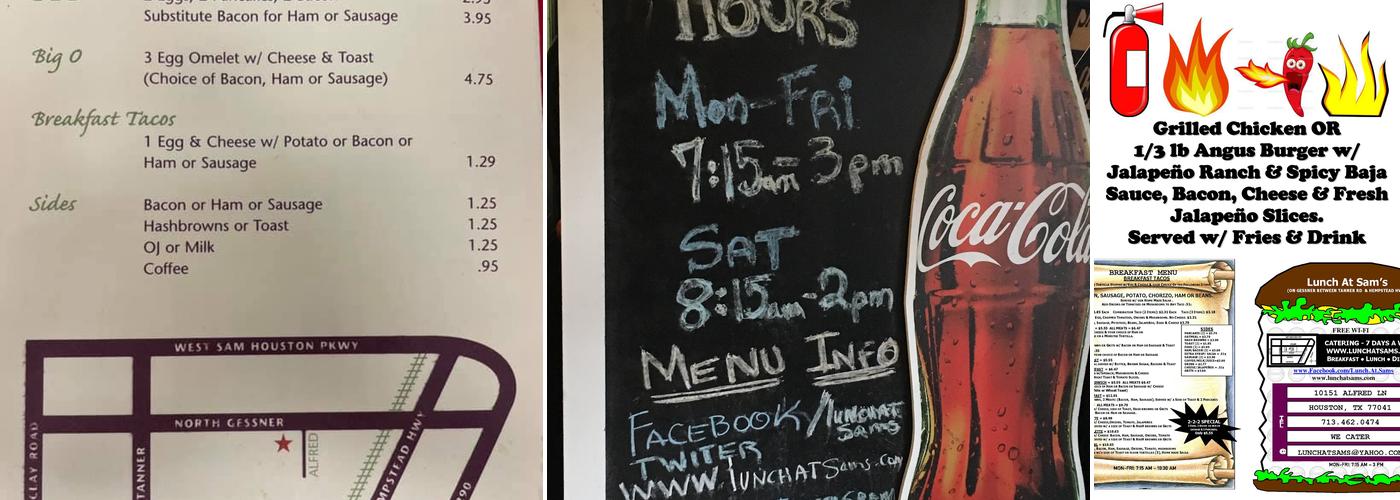 2.95
Substitute Bacon for Ham or Sausage 3.95
Big O 3 Egg Omelet w/ Cheese & Toast
(Choice of Bacon, Ham or Sausage) 4.75
Breakfast Tacos
1 Egg & Cheese w/ Potato or Bacon or
Ham or Sausage 1.29
Sides Bacon or Ham or Sausage 1.25
Hashbrowns or Toast 1.25
OJ or Milk 1.25
Coffee .95
WEST SAM HOUSTON PKWY
NORTH GESSNER
CLAY ROAD
TANNER
ALFRED
MPSTEAD HWY
290
HOURS
Mon-Fri
7:15am-3pm
SAT
8:15am-2pm
MENU INFO
FACEBOOK/lunchat
Sams
TWITER
WWW.lunchatSams.com
Coca-Cola
Grilled Chicken OR
1/3 lb Angus Burger w/
Jalapeño Ranch & Spicy Baja
Sauce, Bacon, Cheese & Fresh
Jalapeño Slices.
Served w/ Fries & Drink
BREAKFAST MENU
BREAKFAST TACOS
N, SAUSAGE, POTATO, CHORIZO, HAM OR BEANS.
SIDES
2-2-2 SPECIAL
MON-FRI: 7:15 AM - 10:30 AM
Lunch At Sam's
(ON GESSNER BETWEEN TANNER RD & HEMPSTEAD
FREE WI-FI
CATERING - 7 DAYS A
WWW.LUNCHATSAMS.
BREAKFAST • LUNCH •
www.Facebook.com/Lunch.At.Sams
www.lunchatsams.com
10151 ALFRED LN
HOUSTON, TX 77041
713.462.0474
WE CATER
LUNCHATSAMS@YAHOO.CO
MON-FRI: 7:15 AM - 3 PM